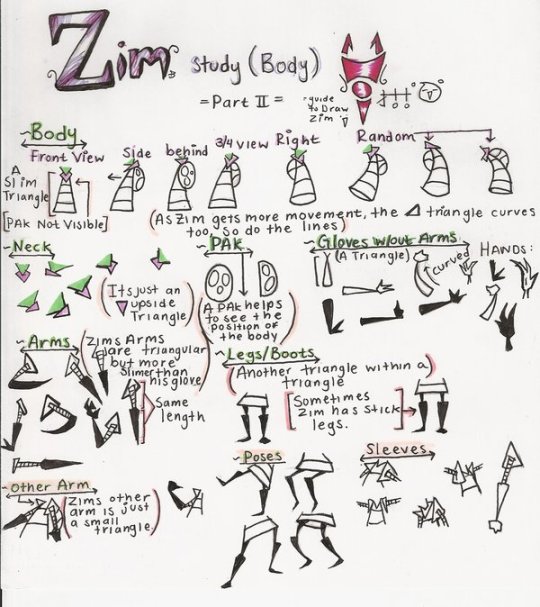 Zim study (Body)
=Part II=
-guide to Draw Zim
~Body
Front View
Side
behind
3/4 view
Right
Random
A Slim Triangle
[PAK Not Visible]
(As Zim gets more movement, the triangle curves too. So do the lines)
~Neck
(Its just an upside Triangle)
~PAK
(A PAk helps to see the position of the body)
~Gloves w/out Arms
(A Triangle)
curved
HANDS:
~Arms
(Zims Arms are triangular but more slimer than his glove)
Same length
~Legs/Boots
(Another triangle within a triangle)
[Sometimes Zim has stick legs.]
~Other Arm
(Zims other arm is just a small triangle)
~Poses
Sleeves